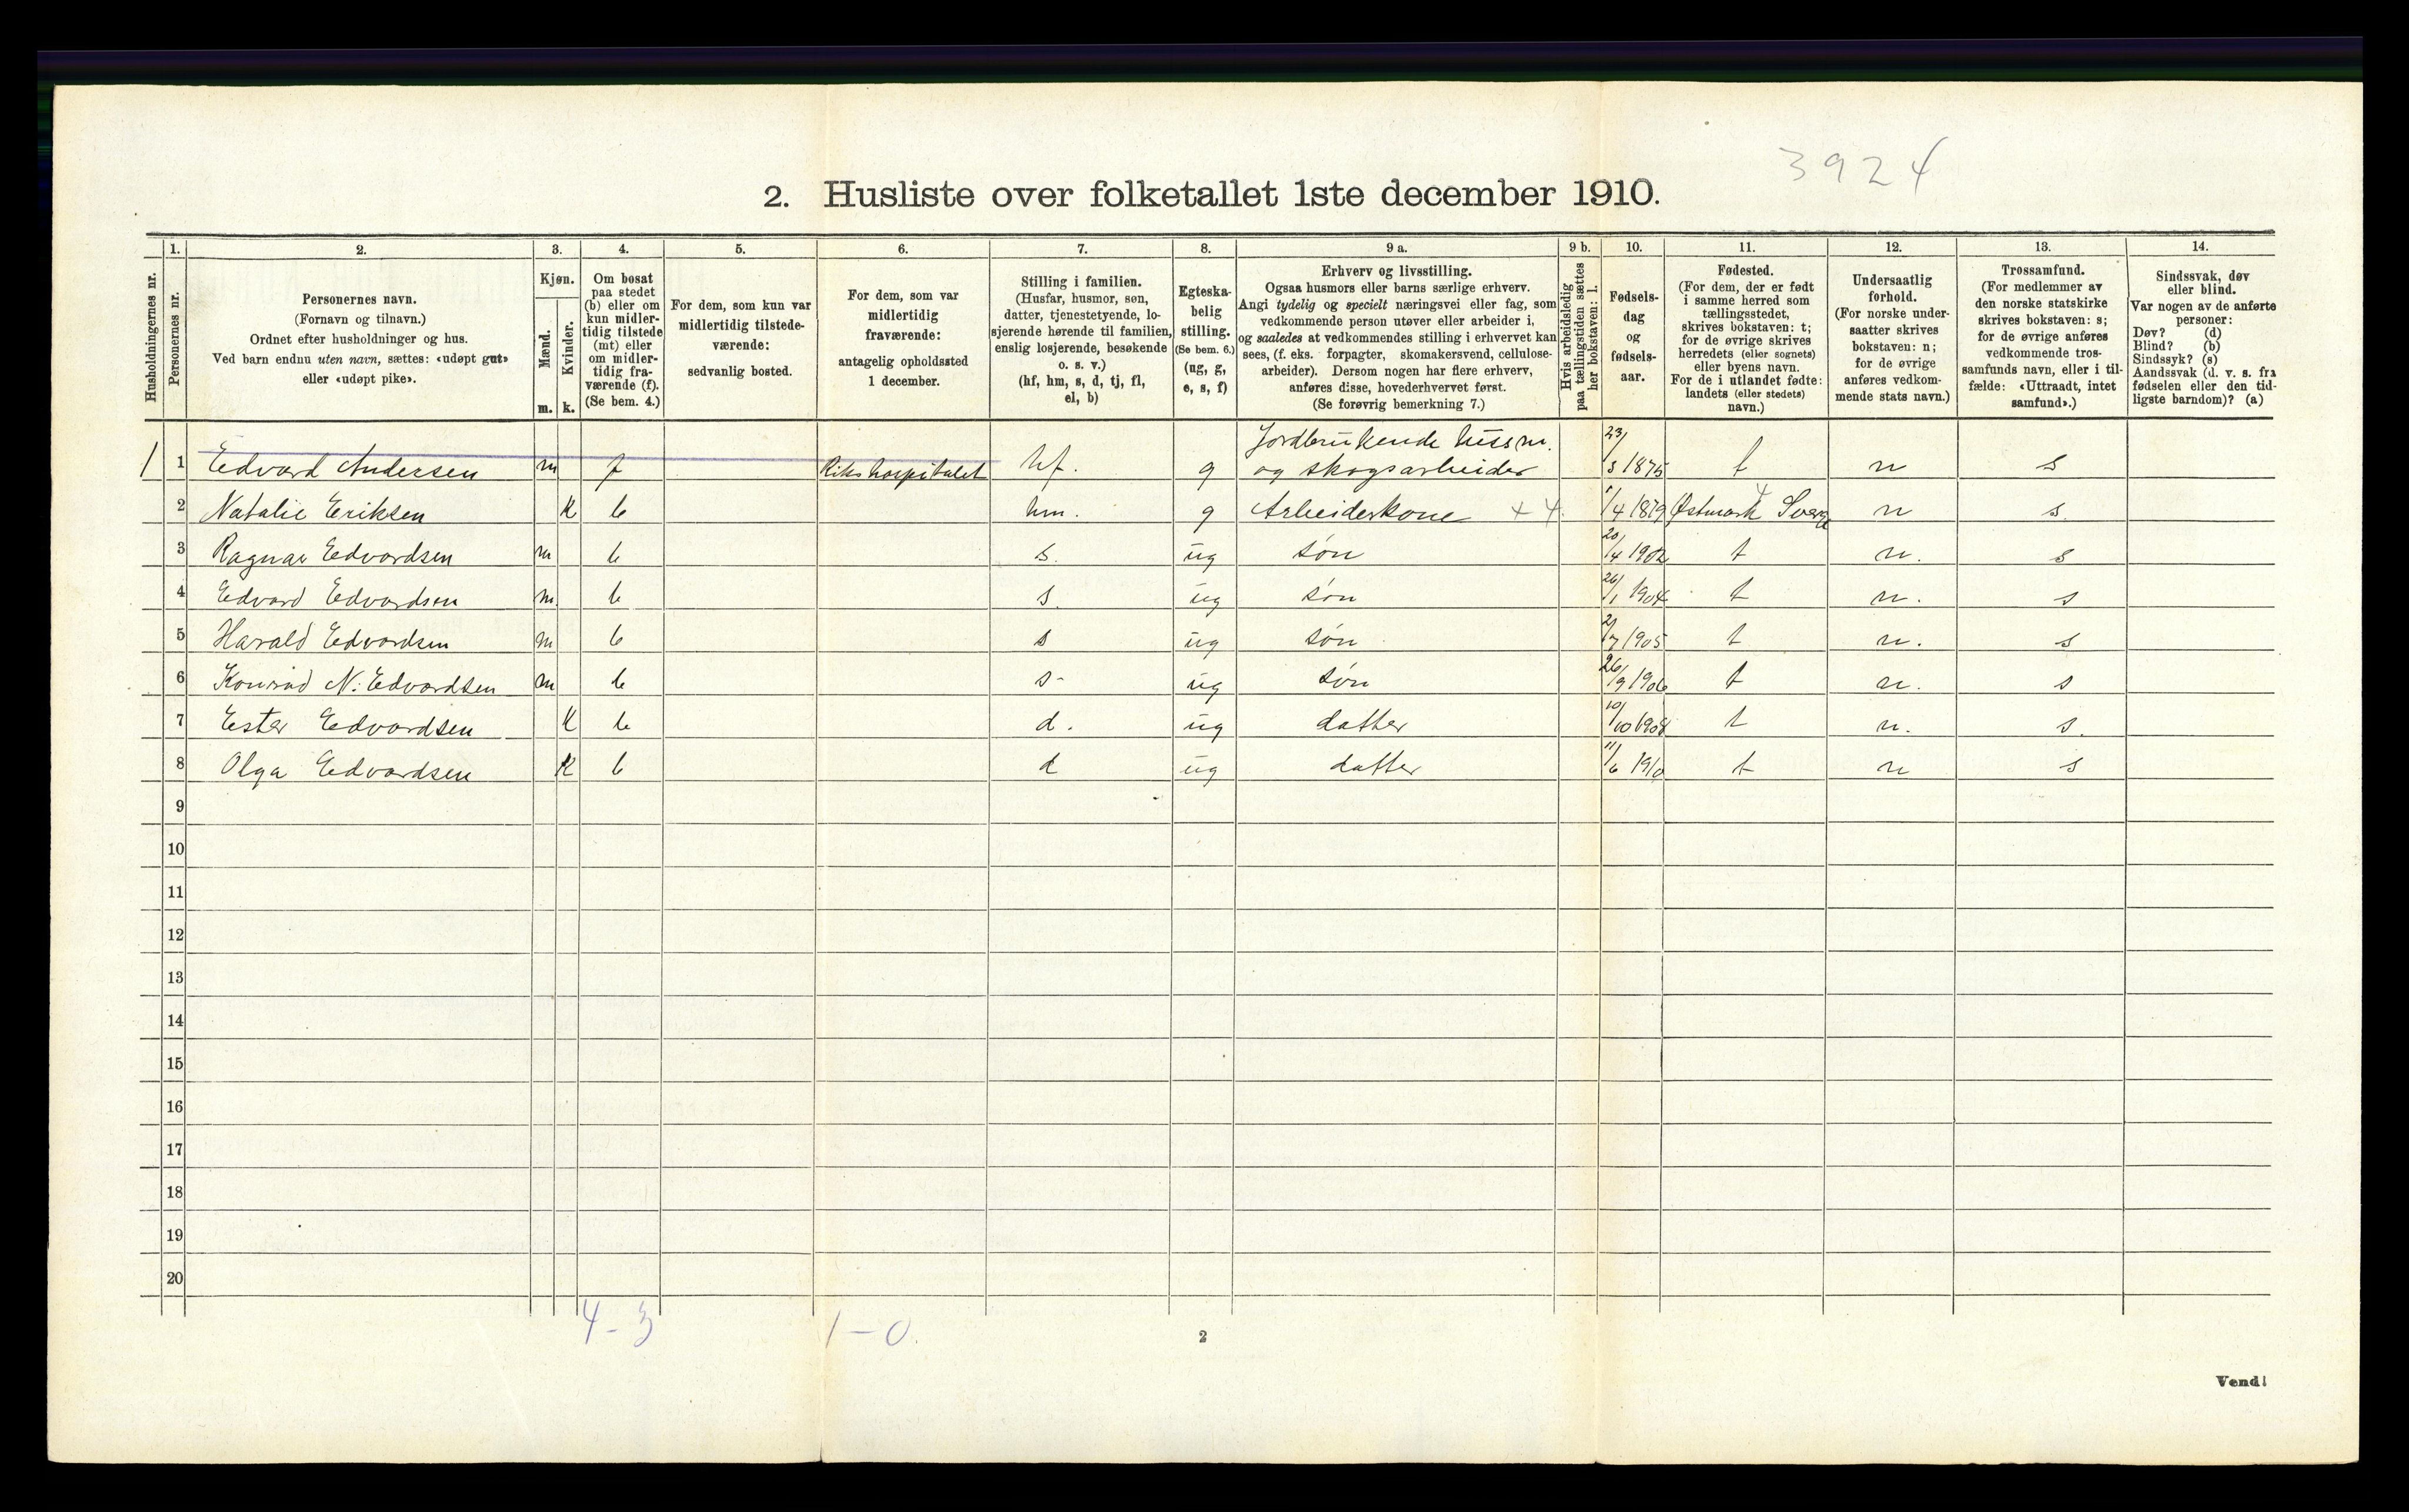 3924
2. Husliste over folketallet 1ste december 1910.
Husholdningernes nr.
1.
Personernes nr.
2.
Personernes navn.
(Fornavn og tilnavn.)
Ordnet efter husholdninger og hus.
Ved barn endnu uten navn, sættes: «udøpt gut»
eller «udøpt pike».
3.
Kjøn.
Mænd.
m.
Kvinder.
k.
4.
Om bosat
paa stedet
(b) eller om
kun midler-
tidig tilstede
(mt) eller
om midler-
tidig fra-
værende (f).
(Se bem. 4.)
5.
For dem, som kun var
midlertidig tilstede-
værende:
sedvanlig bosted.
6.
For dem, som var
midlertidig
fraværende:
antagelig opholdssted
1 december.
7.
Stilling i familien.
(Husfar, husmor, søn,
datter, tjenestetyende, lo-
sjerende hørende til familien,
enslig losjerende, besøkende
o. s. v.)
(hf, hm, s, d, tj, fl,
el, b)
8.
Egteska-
belig
stilling.
(Se bem. 6.)
(ug, g,
e, s, f)
9 a.
Erhverv og livsstilling.
Ogsaa husmors eller barns særlige erhverv.
Angi tydelig og specielt næringsvei eller fag, som
vedkommende person utøver eller arbeider i,
og saaledes at vedkommendes stilling i erhvervet kan
sees, (f. eks. forpagter, skomakersvend, cellulose-
arbeider). Dersom nogen har flere erhverv,
anføres disse, hovederhvervet først.
(Se forøvrig bemerkning 7.)
9 b.
Hvis arbeidsledig
paa tællingstiden sættes
her bokstaven: l.
10.
Fødsels-
dag
og
fødsels-
aar.
11.
Fødested.
(For dem, der er født
i samme herred som
tællingsstedet,
skrives bokstaven: t;
for de øvrige skrives
herredets (eller sognets)
eller byens navn.
For de i utlandet fødte:
landets (eller stedets)
navn.)
12.
Undersaatlig
forhold.
(For norske under-
saatter skrives
bokstaven: n;
for de øvrige
anføres vedkom-
mende stats navn.)
13.
Trossamfund.
(For medlemmer av
den norske statskirke
skrives bokstaven: s;
for de øvrige anføres
vedkommende tros-
samfunds navn, eller i til-
fælde: «Uttraadt, intet
samfund».)
14.
Sindssvak, døv
eller blind.
Var nogen av de anførte
personer:
Døv? (d)
Blind? (b)
Sindssyk? (s)
Aandssvak (d. v. s. fra
fødselen eller den tid-
ligste barndom)? (a)
1 1 Edvard Andersen m f Rikshospitalet hf. g Jordbrukende hussm.
og skogsarbeider 23/3 1875 t n s
2 Natalie Eriksen K b hm. g Arbeiderkone ++ 1/4 1879 Østmark Sverge n s.
3 Ragnar Edvardsen m b s. ug søn 20/4 1902 t n. s
4 Edvard Edvardsen m. b s. ug søn 26/1 1904 t n. s
5 Harald Edvardsen m b s ug søn 2/7 1905 t n. s
6 Konrad N. Edvardsen m b s- ug søn 26/9 1906 t n. s
7 Ester Edvardsen K b d. ug datter 10/10 1908 t n. s.
8 Olga Edvardsen K b d ug datter 11/6 1910 t n s
9
10
11
12
13
14
15
16
17
18
19
20
4-3 1-0
2
Vend!